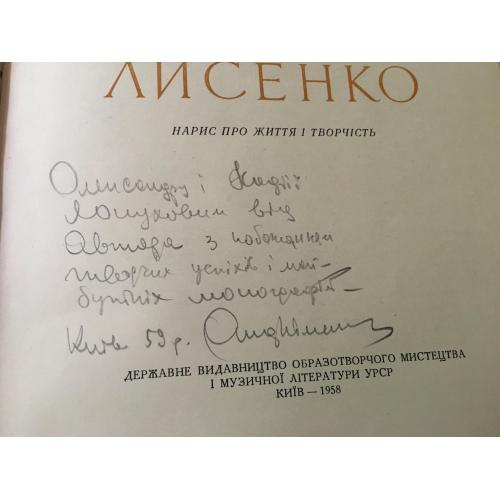 ЛИСЕНКО
НАРИС ПРО ЖИТТЯ І ТВОРЧІСТЬ
Олександру і Надії
Лопуховим від
Автора з побажанням
творчих успіхів і май-
бутніх монографій –
Київ 59 р.
ДЕРЖАВНЕ ВИДАВНИЦТВО ОБРАЗОТВОРЧОГО МИСТЕЦТВА
І МУЗИЧНОЇ ЛІТЕРАТУРИ УРСР
КИЇВ — 1958